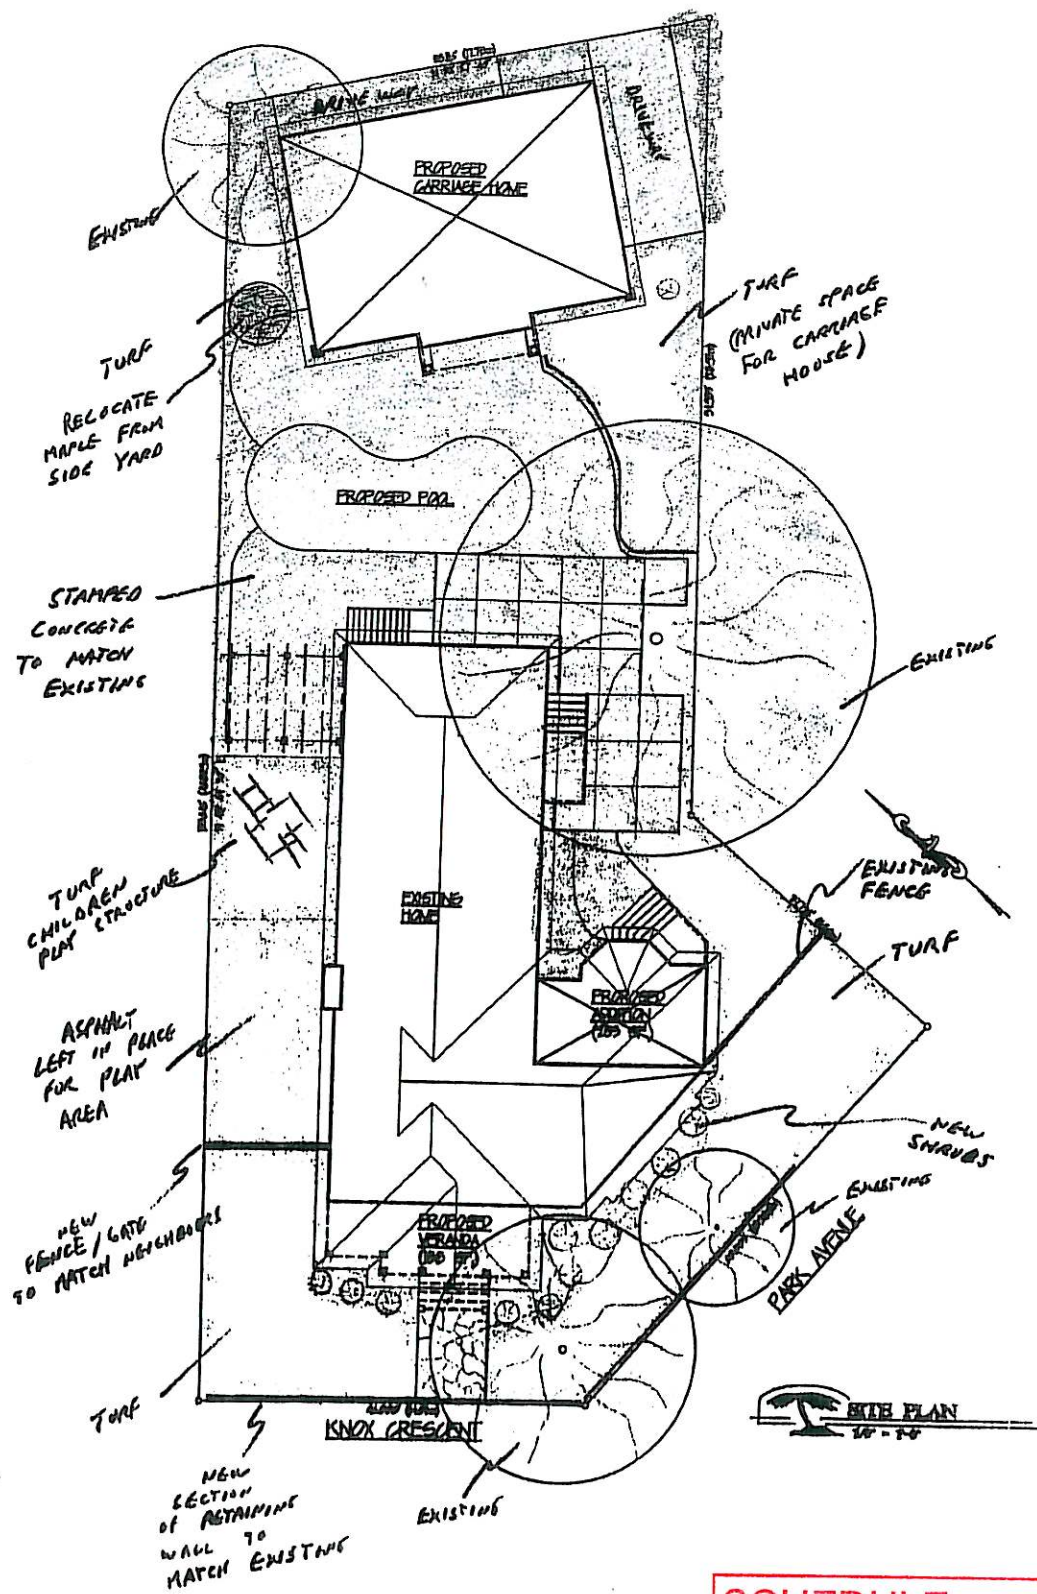 DRIVEWAY
DRIVEWAY
PROPOSED
CARRIAGE HOME
EXISTING
TURF
(PRIVATE SPACE
FOR CARRIAGE
HOUSE)
TURF
RELOCATE
MAPLE FROM
SIDE YARD
PROPOSED POOL
STAMPED
CONCRETE
TO MATCH
EXISTING
EXISTING
TURF
CHILDREN
PLAY STRUCTURE
EXISTING
HOME
EXISTING
FENCE
TURF
PROPOSED
ADDITION
ASPHALT
LEFT IN PLACE
FOR PLAY
AREA
NEW
SHRUBS
EXISTING
NEW
FENCE/GATE
TO MATCH NEIGHBOURS
PROPOSED
VERANDA
PARK AVENUE
TURF
KNOX CRESCENT
SITE PLAN
NEW
SECTION
OF RETAINING
WALL TO
MATCH EXISTING
EXISTING